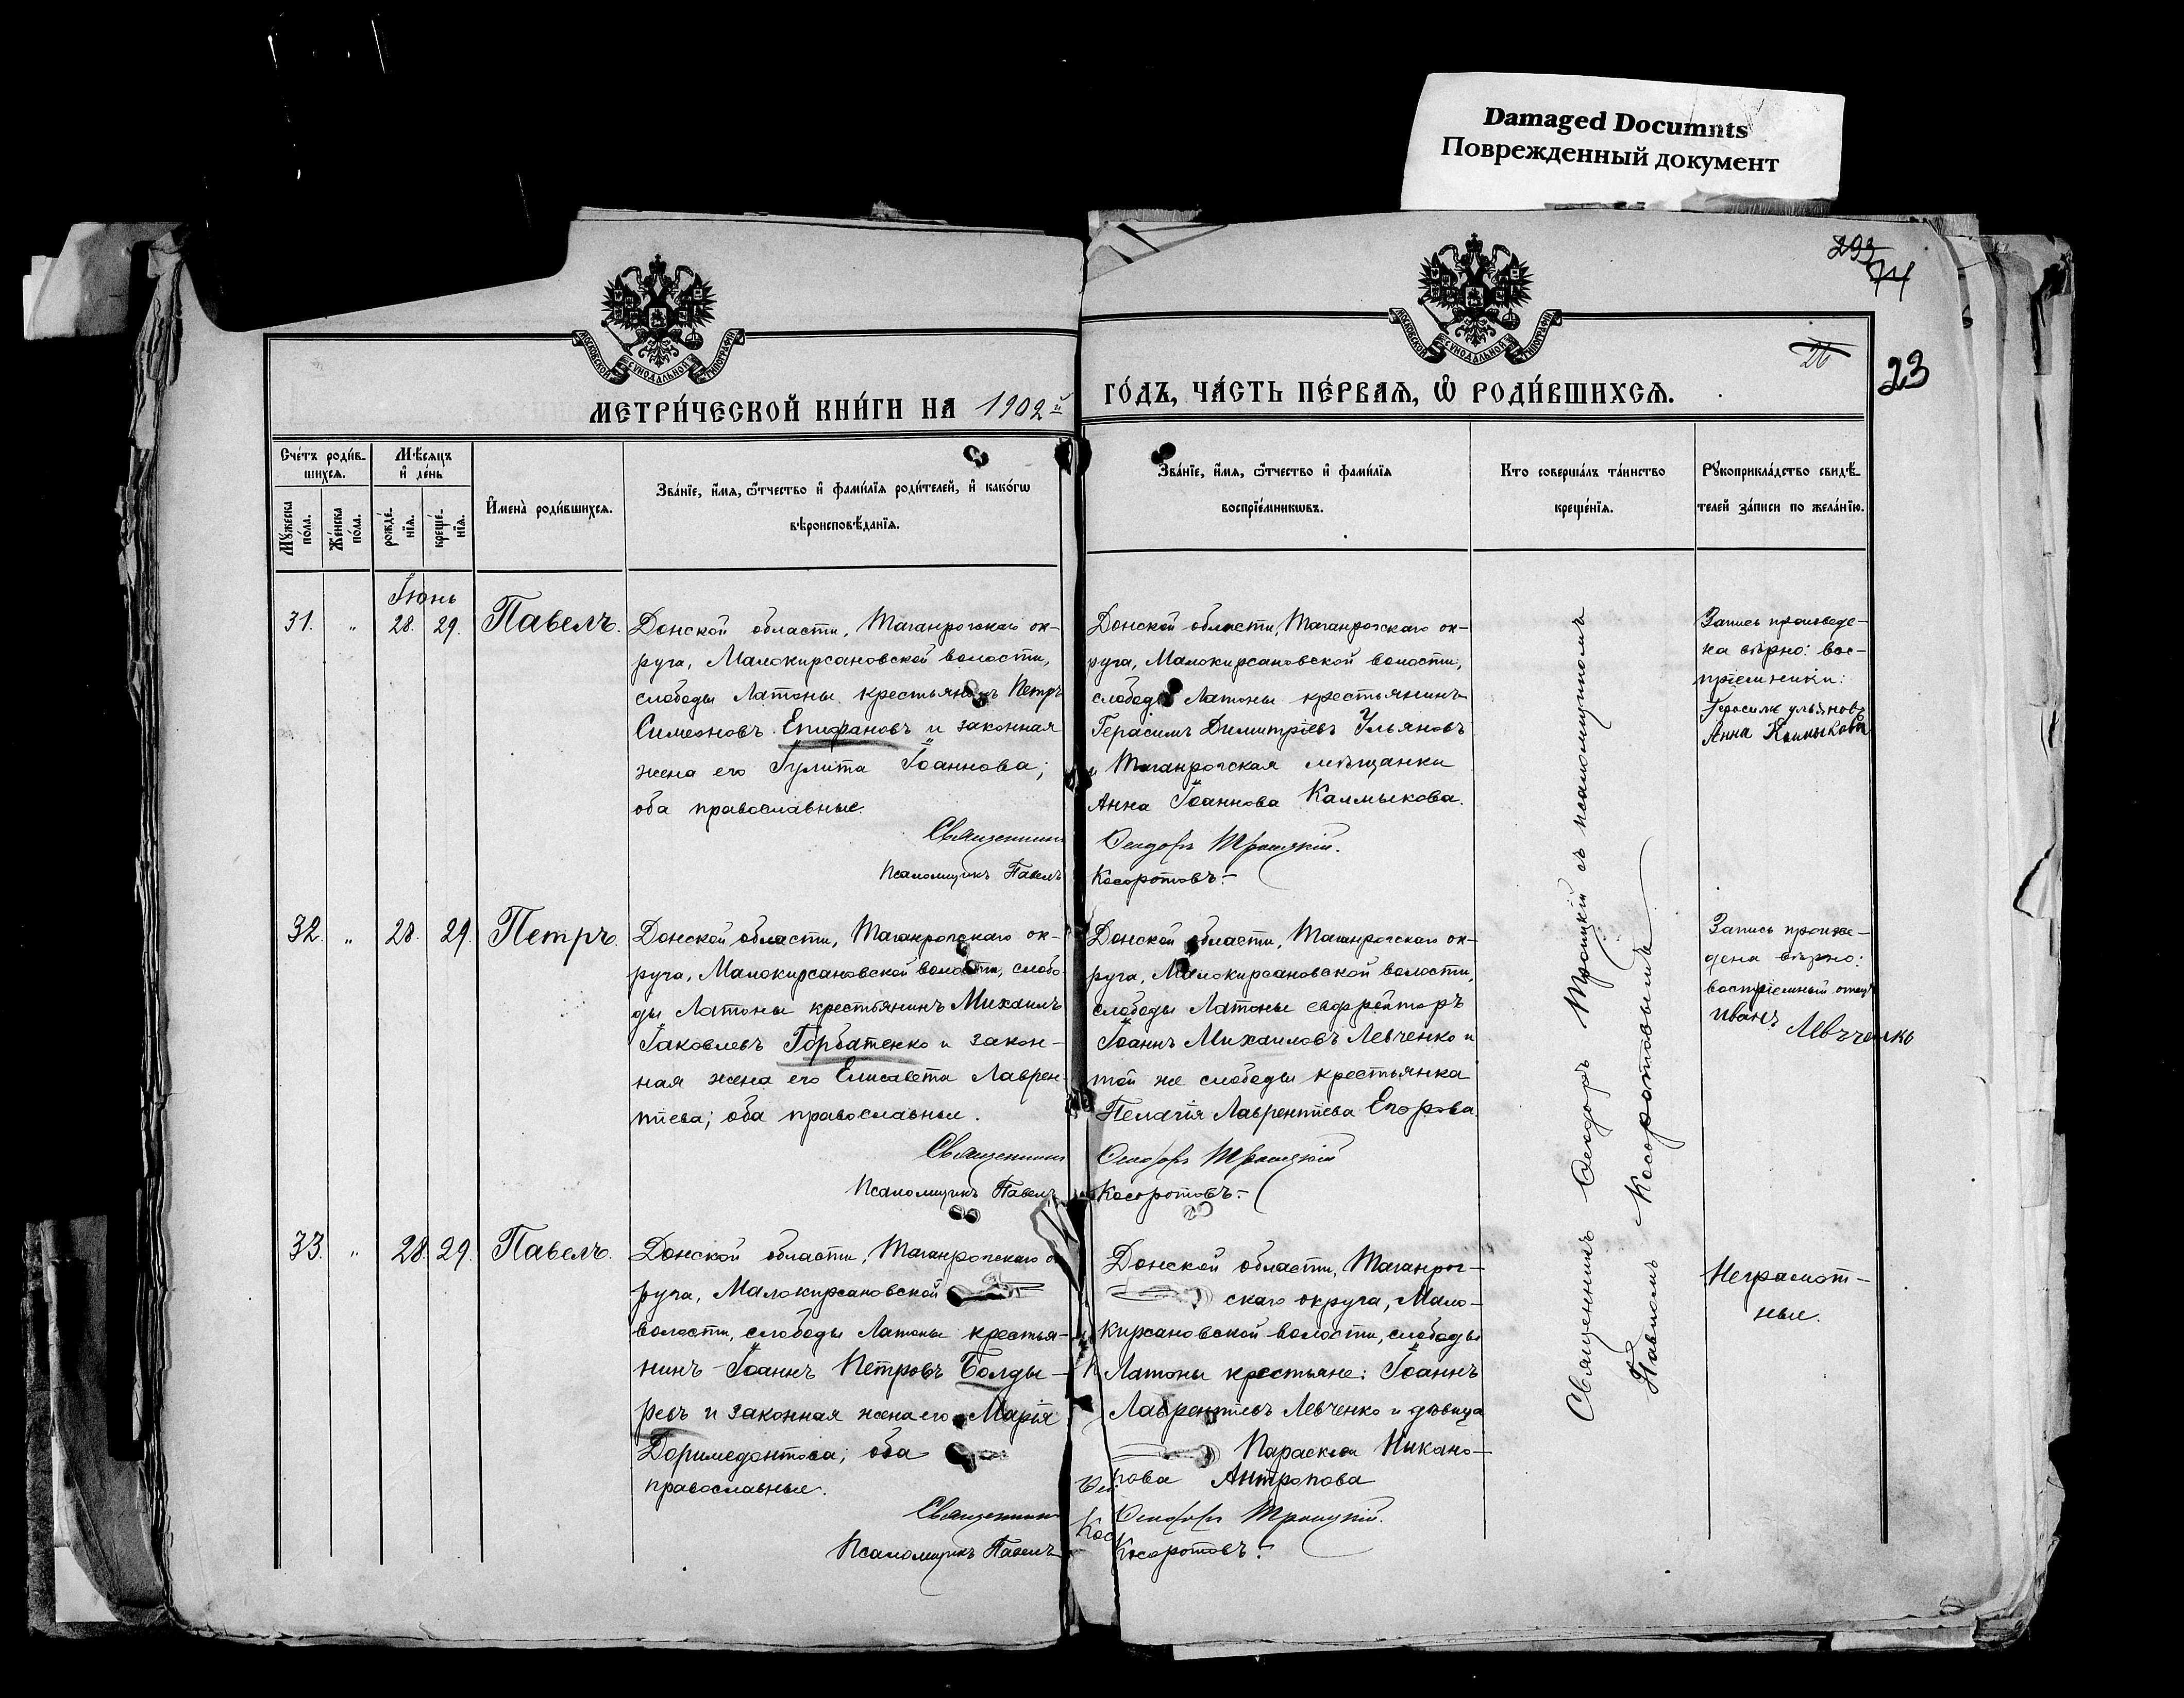 Damaged Documnts
Поврежденный документ
293
74
26
23
МОСКОВСКОЙ СѴНОДАЛЬНОЙ ТИПОГРАФІИ
МОСКОВСКОЙ СѴНОДАЛЬНОЙ ТИПОГРАФІИ
МЕТРИ́ЧЕСКОЙ КНИ́ГИ НА 1902й
ГО́ДЪ, ЧА́СТЬ ПЕ́РВАѦ, Ѡ҆ РОДИ́ВШИХСѦ.
Сче́тъ роди́в-
шихся.
Мѣ́сяцъ
и҆ де́нь
Мꙋ́жеска
по́ла.
Же́нска
по́ла.
рожде́-
нїя.
креще́-
нїя.
И҆мена̀ роди́вшихся.
Зва́нїе, и҆́мя, ѻ҆́тчество и҆ фами́лїя роди́телей, и҆ како́гѡ
вѣроисповѣ́данїя.
Зва́нїе, и҆́мя, ѻ҆́тчество и҆ фами́лїя
воспрїе́мникѡвъ.
Кто соверша́лъ та́инство
креще́нїя.
Рꙋкоприкла́дство свидѣ́-
телей за́писи по жела́нїю.
Іюнь
31. " 28. 29. Павелъ.
Донской области, Таганрогскаго ок-
руга, Малокирсановской волости,
слободы Латоны крестьянинъ Петръ
Симеоновъ Епифановъ и законная
жена его Іулита Іоаннова;
оба православные.
Священникъ
Псаломщикъ Павелъ
Донской области, Таганрогскаго ок-
руга, Малокирсановской волости,
слободы Латоны крестьянинъ
Герасимъ Димитріевъ Ульяновъ
и Таганрогская мѣщанка
Анна Іоаннова Калмыкова.
Ѳеодоръ Троицкій.
Косоротовъ.-
Запись произведе-
на вѣрно: вос-
пріемники:
Герасимъ ульяновъ
Анна Калмыкова
32. " 28. 29. Петръ.
Донской области, Таганрогскаго ок-
руга, Малокирсановской волости, слобо
ды Латоны крестьянинъ Михаилъ
Іаковлевъ Горбатенко и закон-
ная жена его Елисавета Лаврен-
тіева; оба православные.
Священникъ
Псаломщикъ Павелъ
Донской области, Таганрогскаго ок-
руга, Малокирсановской волости,
слободы Латоны ефрейторъ
Іоаннъ Михаиловъ Левченко и
той же слободы крестьянка
Пелагія Лаврентіева Егорова
Ѳеодоръ Троицкій
Косоротовъ.-
Запись произве-
дена вѣрно:
воспріемный отецъ
Иванъ Левченко
33. " 28. 29. Павелъ.
Донской области, Таганрогскаго ок
руга, Малокирсановской
волости, слободы Латоны крестья-
нинъ Іоаннъ Петровъ Болды-
ревъ и законная жена его Марія
Доримедонтова; оба
православные.
Священникъ
Псаломщикъ Павелъ
Донской области, Таганрог-
скаго округа, Мало-
кирсановской волости, слободы
Латоны крестьяне: Іоаннъ
Лаврентіевъ Левченко и дѣвица
Параскева Никано-
рова Антропова
Ѳеодоръ Троицкій.
Кос
Косоротовъ.-
Неграмот-
ные.
Священникъ Ѳеодоръ Троицкій съ псаломщикомъ
Павломъ Косоротовымъ